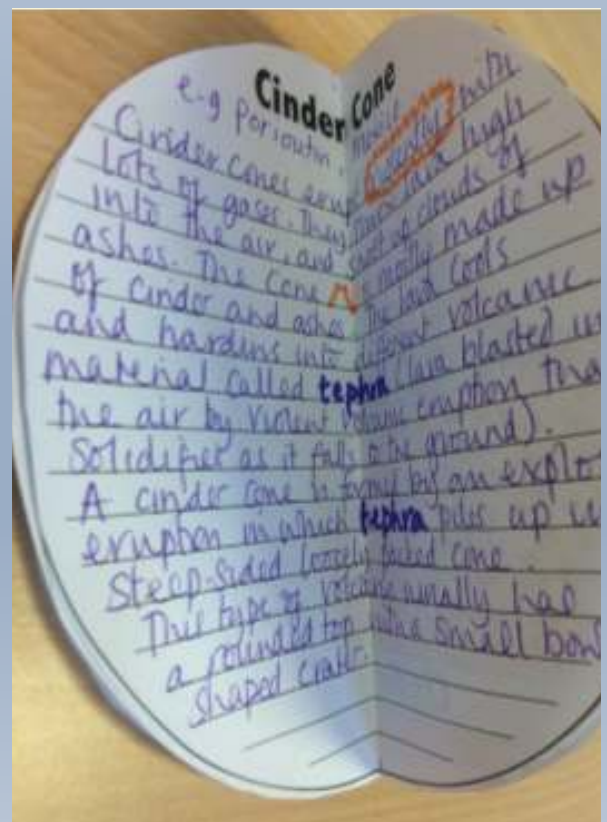 Cinder Cone
e.g poricutin, mexico
Cinder cones erupt violently with
lots of gases. They throw lava high
into the air, and clouds of
ashes. The cone is mostly made up
of cinder and ashes. The lava cools
and hardens into different volcanic
material called tephra (lava blasted
the air by violent volcanic eruption
solidifies as it falls to the ground).
A cinder cone is formed by an explo
eruption in which tephra piles up
steep-sided loosely packed cone.
This type of volcano usually has
a rounded top with a small bowl
shaped crater.